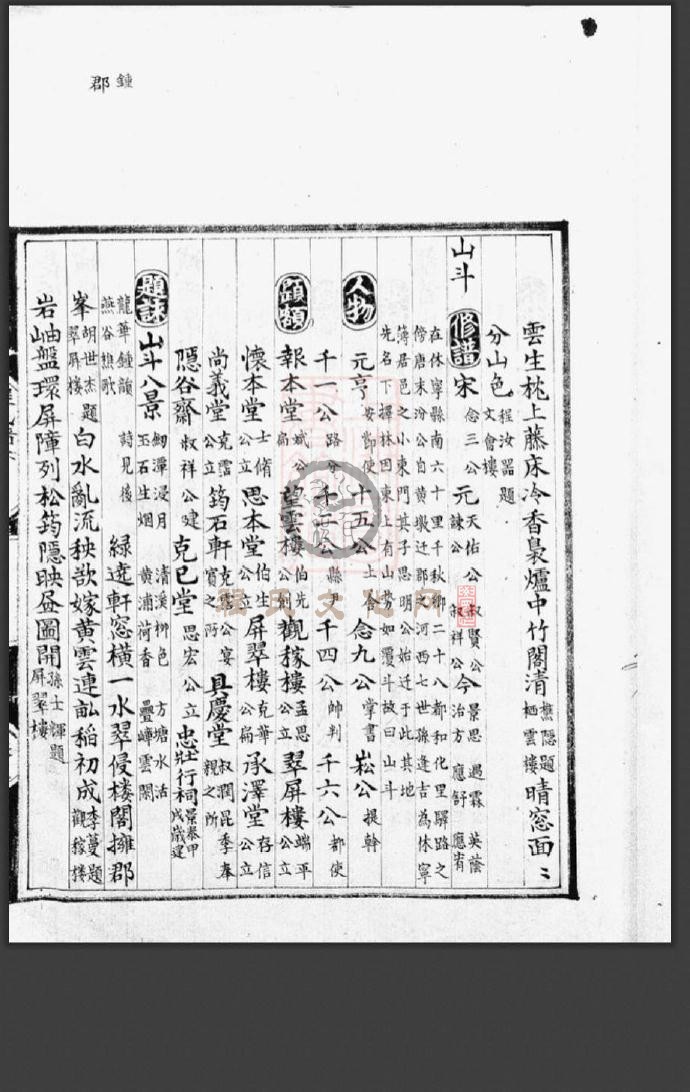 鍾
郡
雲生枕上藤床冷香裊爐中竹閣清 樵隱題 栖雲樓 晴窓面〻
分山色 程汝器題 文會樓
山斗 修譜 宋 念三公 元 天佑公 諫公 叔賢公 叔祥公 今 景思 遇霖 英蔭 治方 應舒 應省
在休寧縣南六十里千秋鄉二十八都和化里驛路之
傍唐末汾公自黃墩迁郡之河西七世孫逢吉為休寧
簿居邑之小東門其子思明公始迁于此其地
先名下擇林因東上有山勢如覆斗故曰山斗
人物 元亨 安郎使 十五公 上舍 念九公 掌書 崧公 提幹
千一公 路 千二公 縣 千四公 帥判 千六公 都使
題額 報本堂 斌公 扁 望雲樓 伯先 公創 觀稼樓 孟思 公立 翠屏樓 端平 公立
懷本堂 士脩 公立 思本堂 伯生 公立 屏翠樓 克華 公扁 承澤堂 存信 公立
尚義堂 克寬 公立 筠石軒 克寬公宴 賓之所 具慶堂 叔潤昆季奉 親之所
隱谷齋 叔祥公建 克已堂 思宏公立 忠壯行祠 景泰甲 戌歲建
題詠 山斗八景 詩見後 釰潭浸月 玉石生烟 清溪柳色 黃浦荷香 方塘水活 疊嶂雲開
龍華鍾韻 燕谷樵歌 綠遶軒窓橫一水翠侵楼閣擁郡
峯 胡世杰題 翠屏樓 白水亂流秧欲嫁黃雲連畝稻初成 李蔓題 觀稼樓
岩岫盤環屏障列松筠隱映昼圖開 孫士輝題 屏翠樓